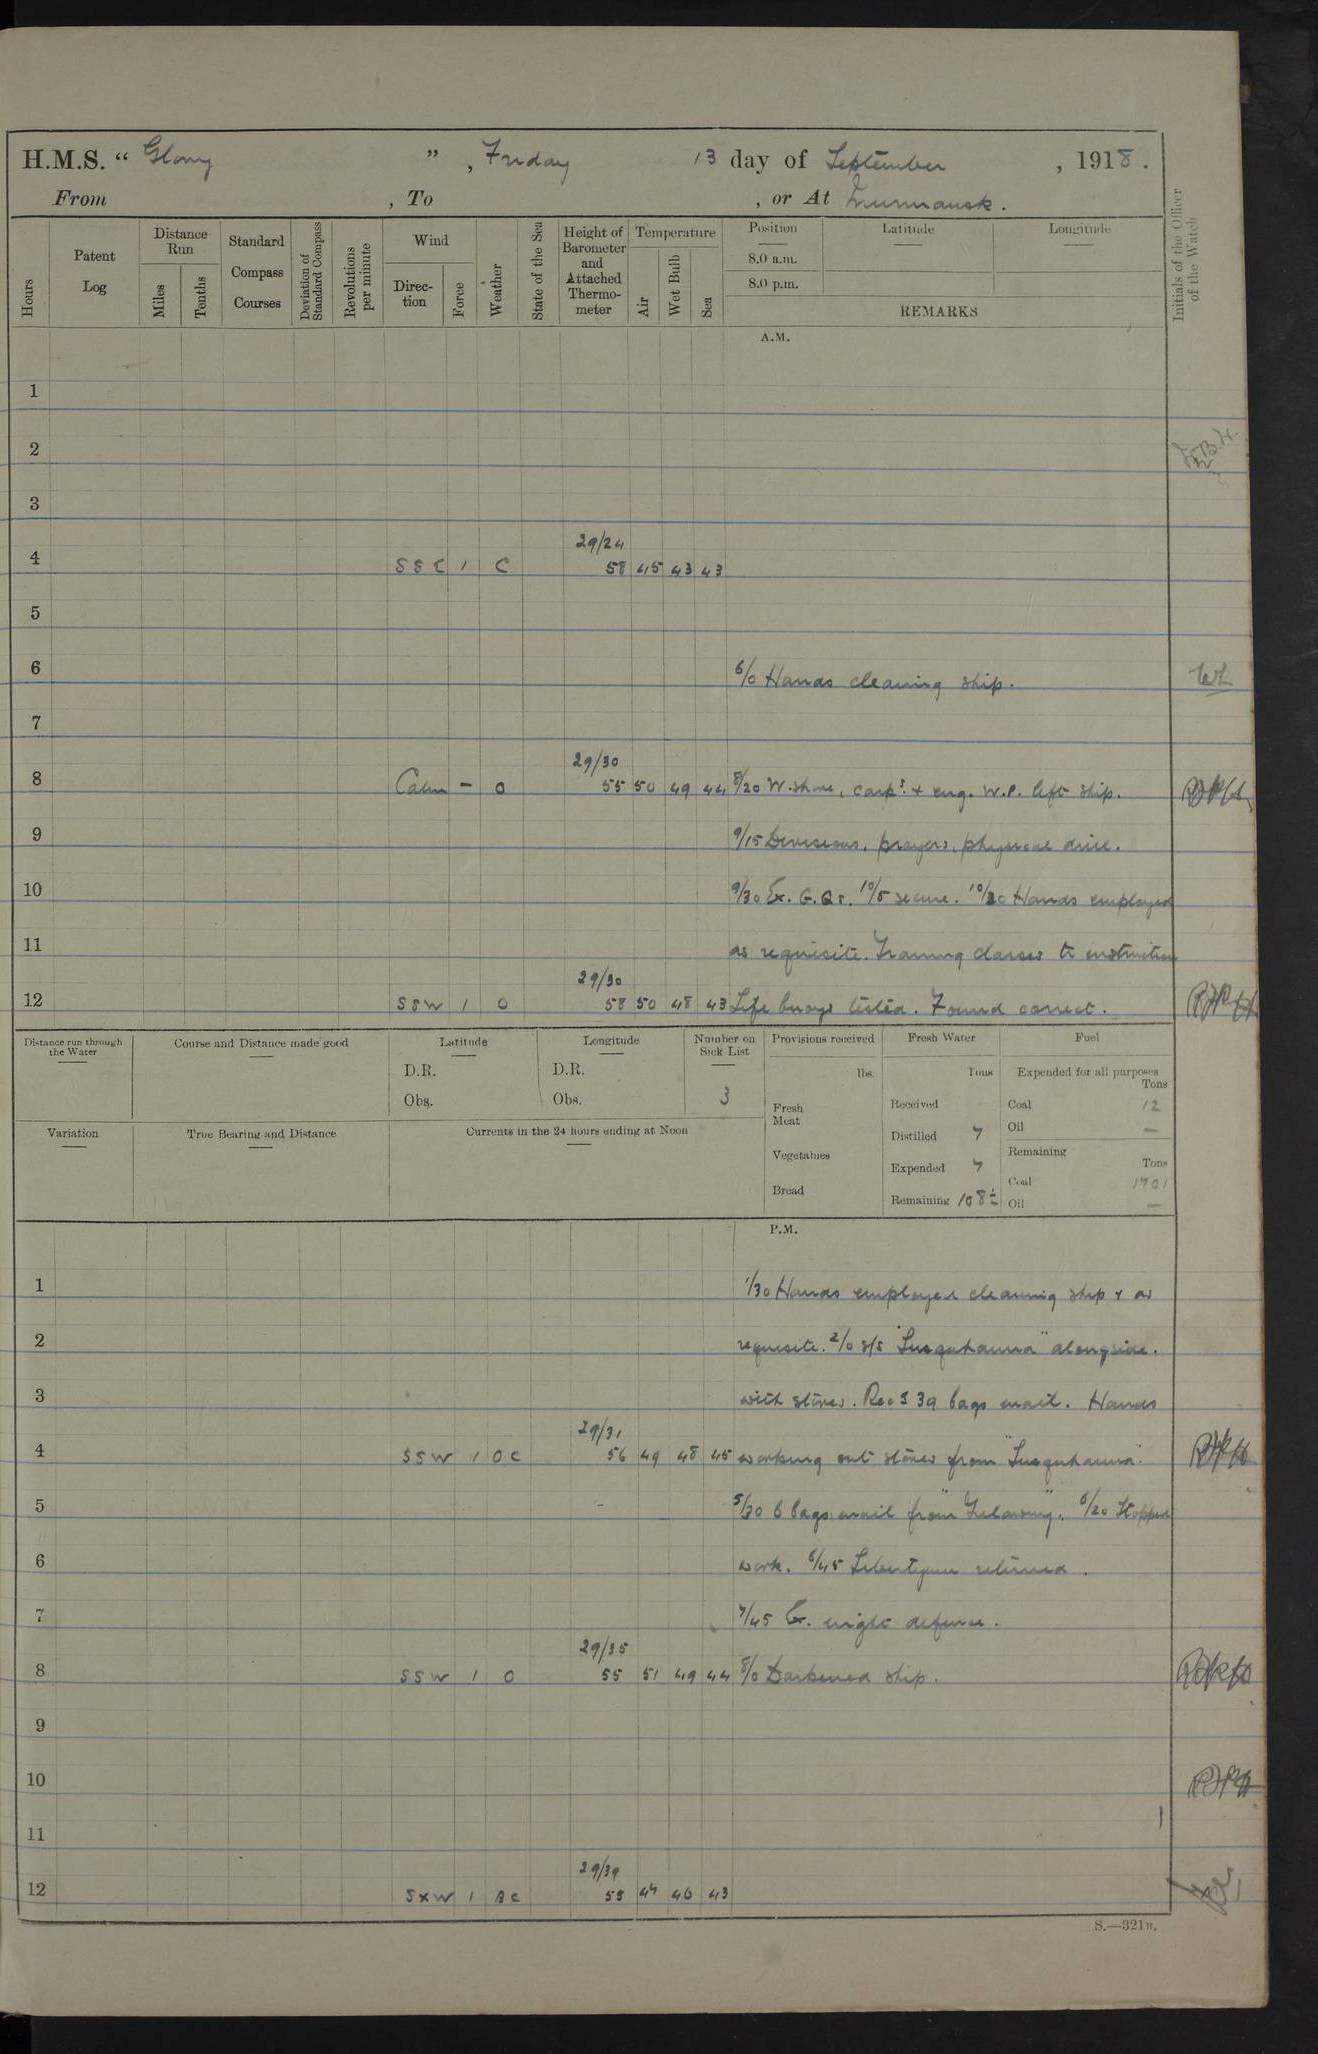 H.M.S. “ Glory ” , Friday 13 day of September , 1918 .
From , To , or At Murmansk .
Hours
Patent Log
Distance Run
Miles
Tenths
Standard Compass Courses
Deviation of Standard Compass
Revolutions per minute
Wind
Direction
Force
Weather
State of the Sea
Height of Barometer and Attached Thermometer
Temperature
Air
Wet Bulb
Sea
Position
8.0 a.m.
8.0 p.m.
Latitude
Longitude
REMARKS
Initials of the Officer of the Watch
A.M.
1
2
3
29/24
4 SSE 1 C 58 45 43 43
5
6 6/0 Hands cleaning ship.
7
29/30
8 Calm - O 55 50 49 44 8/20 W. shore, carp.s & eng. W.P. left ship.
9 9/15 Divisions, prayers, physical drill.
10 9/30 Ex. G.Qrs. 10/5 secure. 10/20 Hands employed
11 as requisite. Training classes to instruction
29/30
12 SSW 1 O 58 50 48 43 Life buoys tested. Found correct.
Distance run through the Water
Course and Distance made good
Latitude
D.R.
Obs.
Longitude
D.R.
Obs.
Number on Sick List
3
Provisions received
lbs.
Fresh Meat
Vegetables
Bread
Fresh Water
Tons
Received
Distilled 7
Expended 7
Remaining 108½
Fuel
Expended for all purposes
Tons
Coal 12
Oil —
Remaining
Tons
Coal 1701
Oil —
Variation
True Bearing and Distance
Currents in the 24 hours ending at Noon
P.M.
1 1/30 Hands employed cleaning ship & as
2 requisite. 2/0 s/s "Susquhanna" alongside.
3 with stores. Rec'd 39 bags mail. Hands
29/31
4 SSW 1 OC 56 49 48 45 working out stores from "Susquhanna".
5 5/30 6 bags mail from 6/20 Stopped
6 work. 6/45 Libertymen returned.
7 7/45 Ex. night defence.
29/35
8 SSW 1 O 55 51 49 44 8/0 Darkened ship.
9
10
11
29/39
12 SxW 1 BC 55 47 46 43
S.—321B.